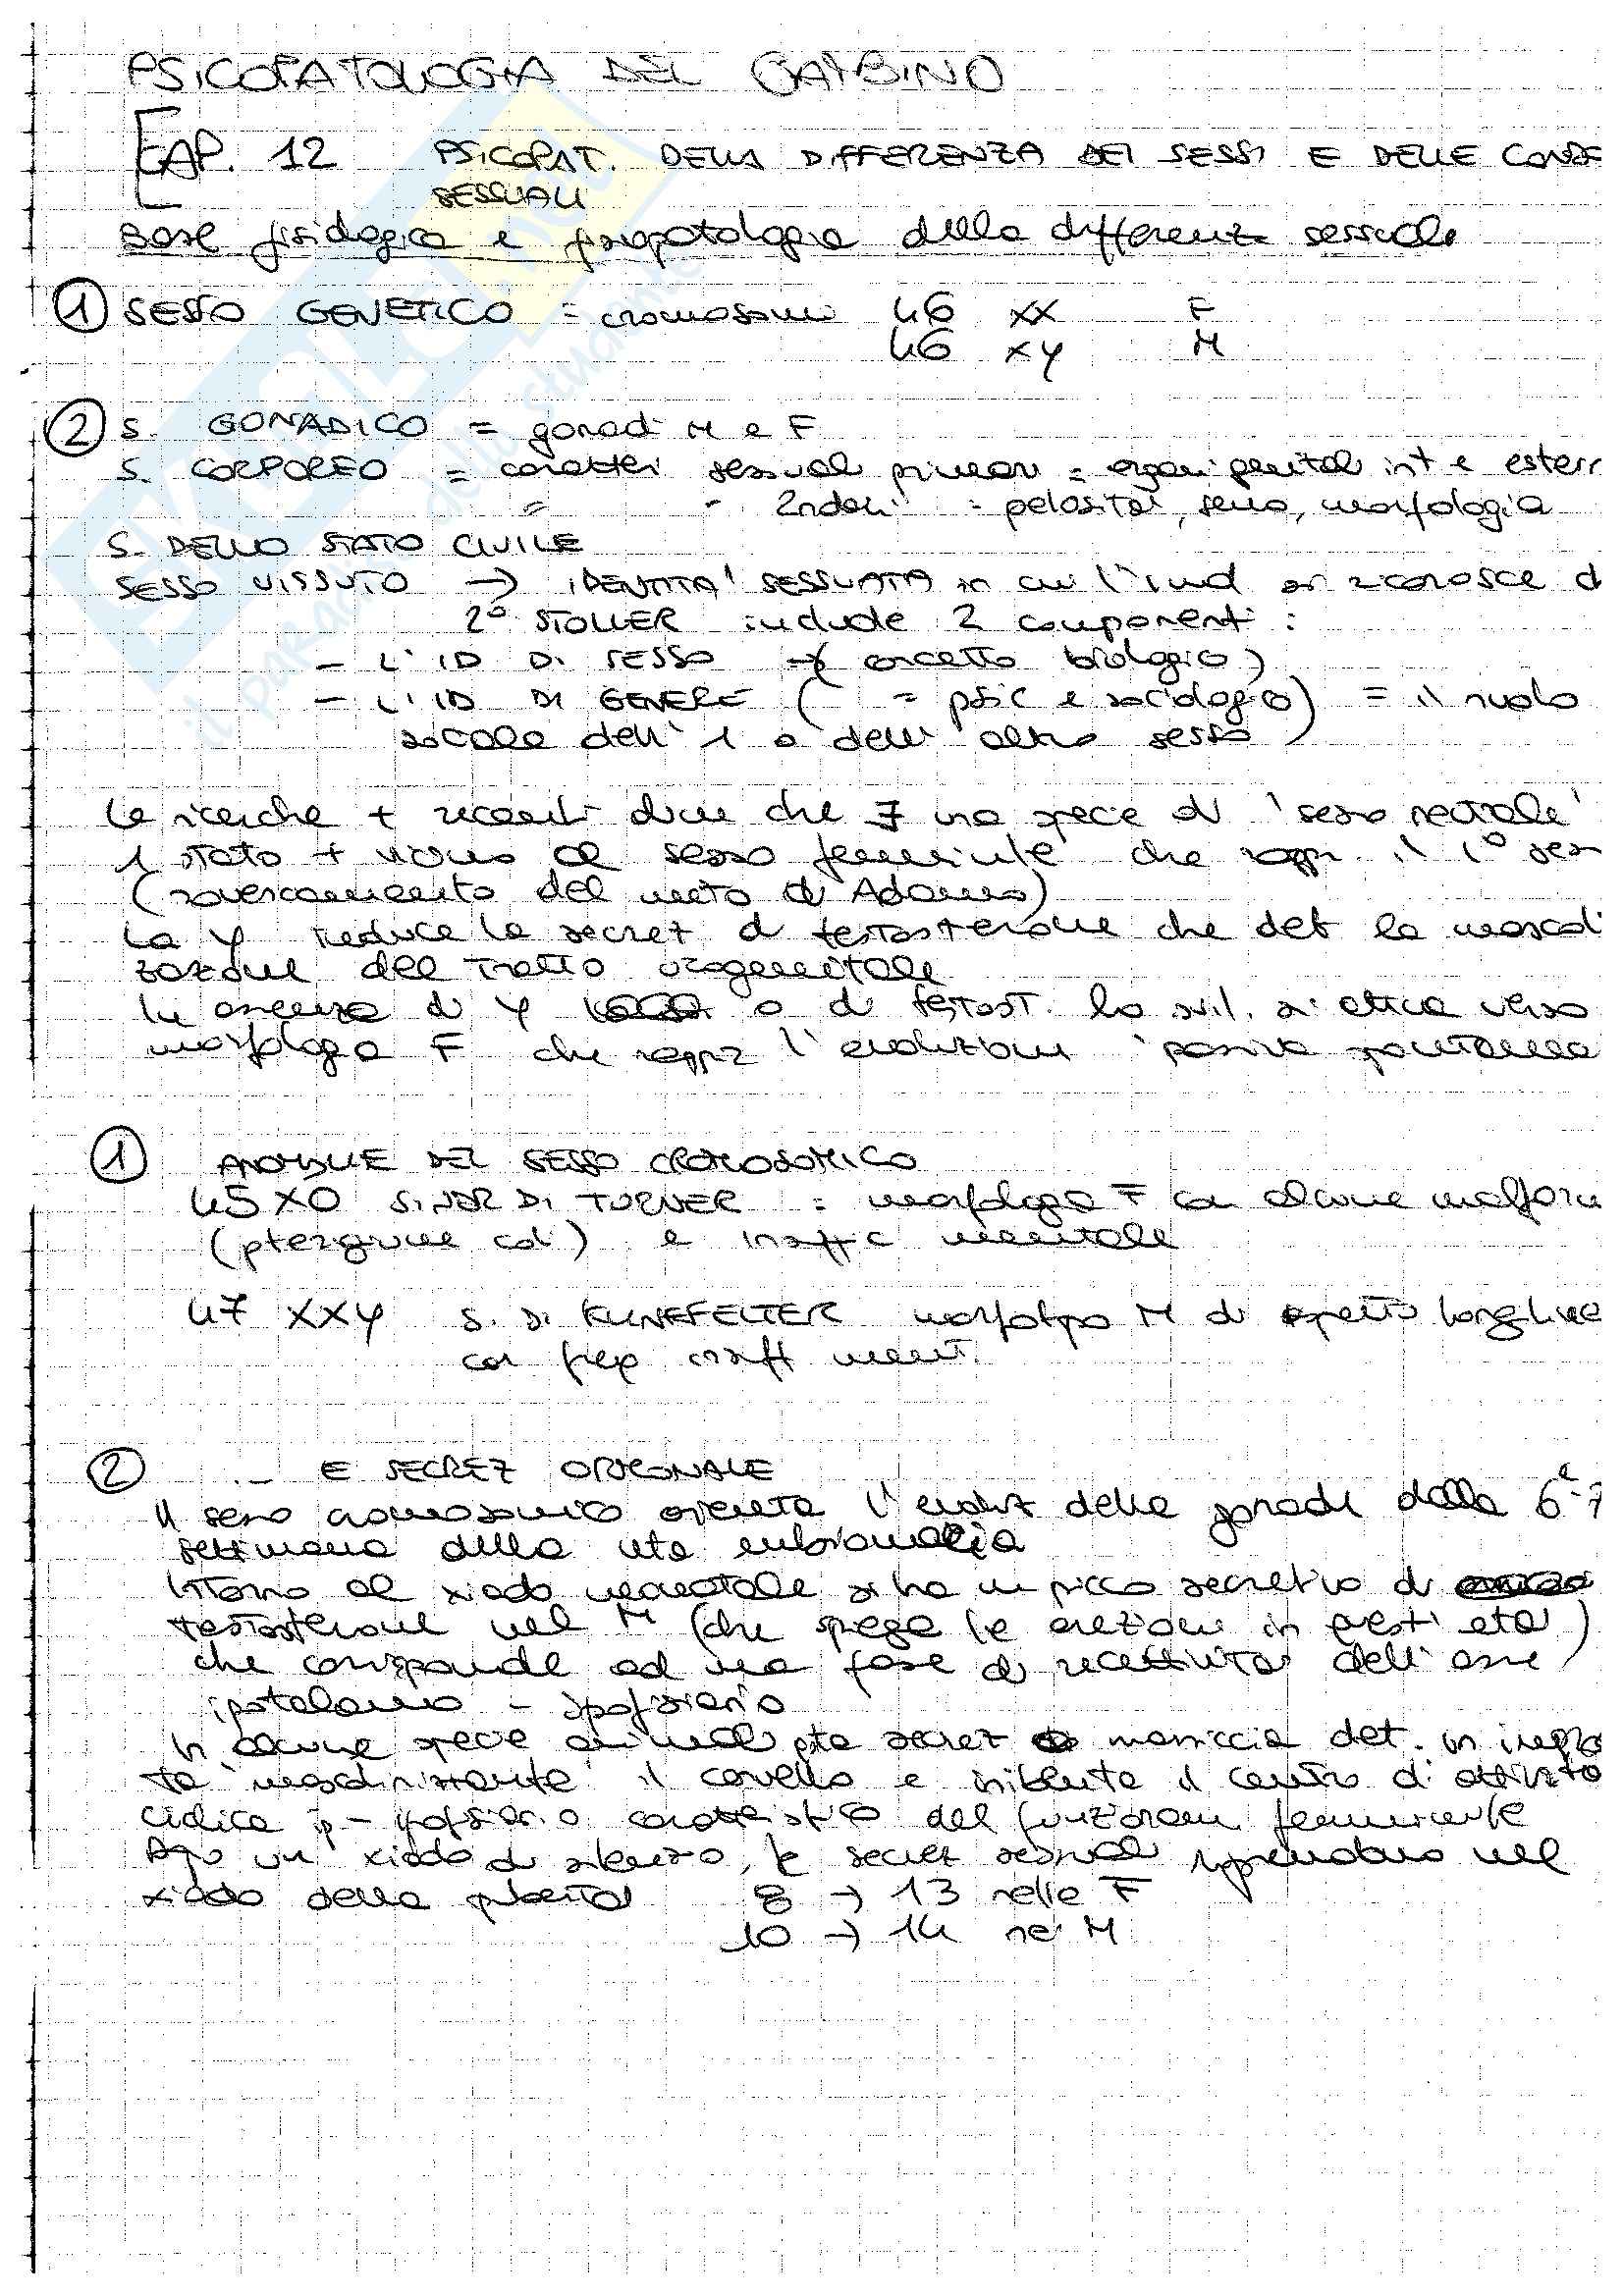 PSICOPATOLOGIA DEL BAMBINO
CAP. 12 PSICOPAT. DELLA DIFFERENZA DEI SESSI E DELLE COND
SESSUALI
Base fisiologica e fisiopatologia della differenza sessuale
① SESSO GENETICO = cromosomi 46 XX F
46 XY M
② S. GONADICO = gonadi M e F
S. CORPOREO = caratteri sessuali primari = organi genitali int e ester
= " 2ndari : pelosità, seno, morfologia
S. DELLO STATO CIVILE
SESSO VISSUTO → IDENTITA' SESSUATA in cui l'ind si riconosce d
2° STOLLER include 2 componenti :
- L' ID DI SESSO → (concetto biologico)
- L' ID DI GENERE ( = psic e sociologico) = il ruolo
sociale dell' 1 o dell' altro sesso
Le ricerche + recenti che ∃ una specie di 'sesso neutrale'
1 stato + vicino al sesso femminile che rappr. il 1° ses
(rovesciamento del mito di Adamo)
La Y induce la secrez di testosterone che det la mascoli
zazione del tratto urogenitale
In assenza di Y o di testost. lo svil. si attua verso
morfologia F che rappr l'evoluzione 'passiva spontanea
① ANOMALIE DEL SESSO CROMOSOMICO
45 XO SINDR DI TURNER : morfologia F con alcune malform
(pterigium coli) e insuffic mentale
47 XXY S. DI KLINEFELTER morfotipo M di aspetto longiline
con freq insuff ment.
② .- E SECREZ ORMONALE
Il sesso cromosomico orienta l'evoluz delle gonadi dalla 6ª-7
settimana della vita embrionaria
Intorno al xiodo neonatale si ha un picco secretivo di
testosterone nel M (che spiega le erezioni in quest'età)
che corrisponde ad una fase di recettività dell'asse
ipotalamo - ipofisario
In alcune specie animali qta secrez massiccia det. un impro
ta 'mascolinizzante' il cervello e inibente il centro di attività
ciclica ip - ipofisario caratteristico del funzionam femminile
Dopo un xiodo di silenzio, le secrez sessuali riprendono nel
xiodo della pubertà 8 → 13 nelle F
10 → 14 nei M